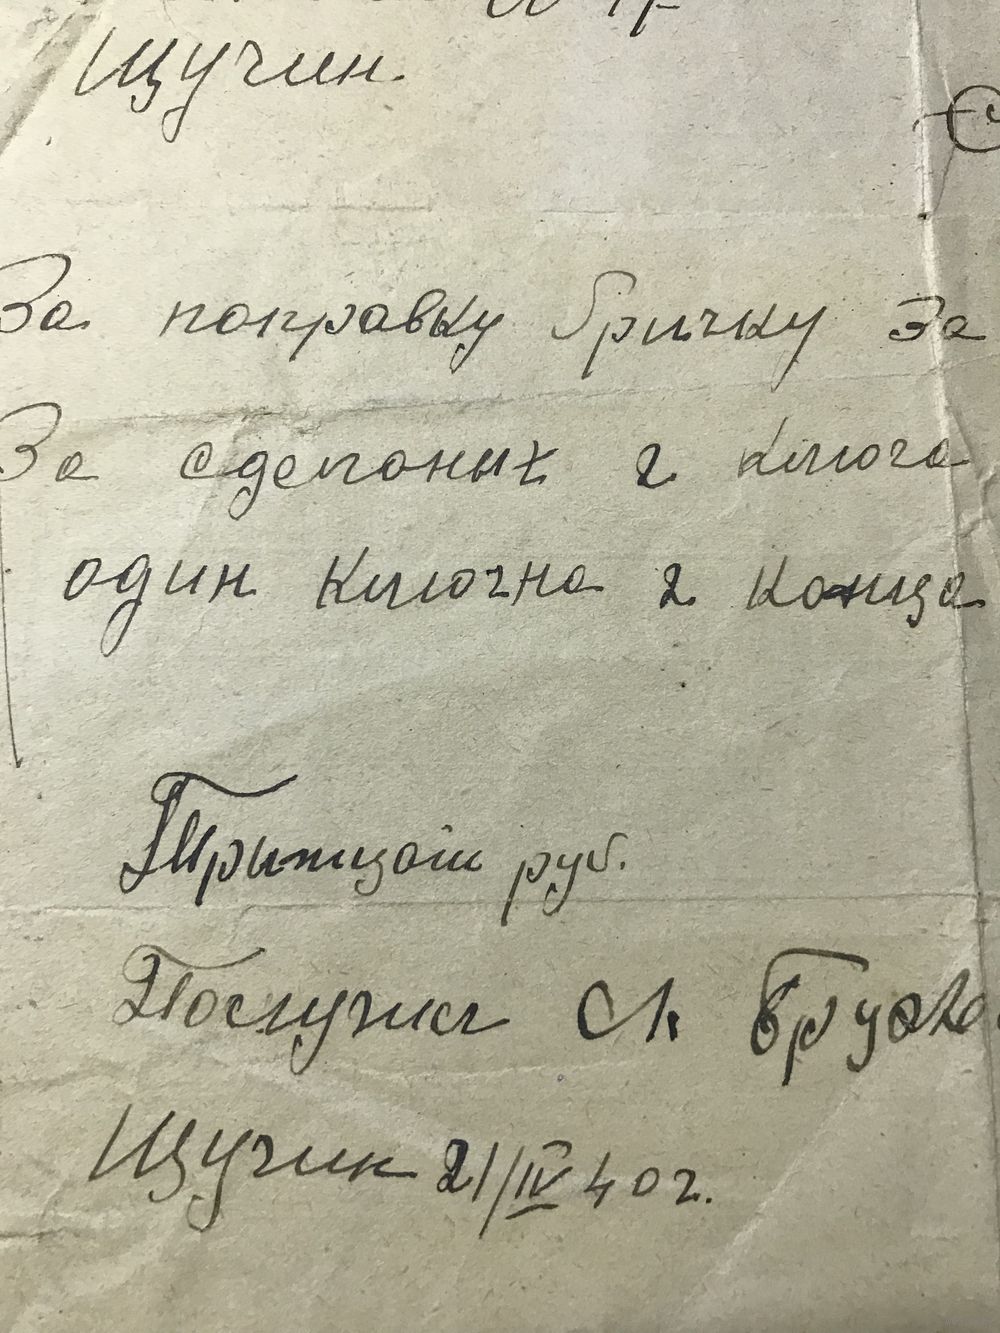 Щучин.
За поправку бричку за
За сделоных 2 ключа
один ключна 2 конца
Трыцать руб.
Получил
Щучин 21/IV 40 г.